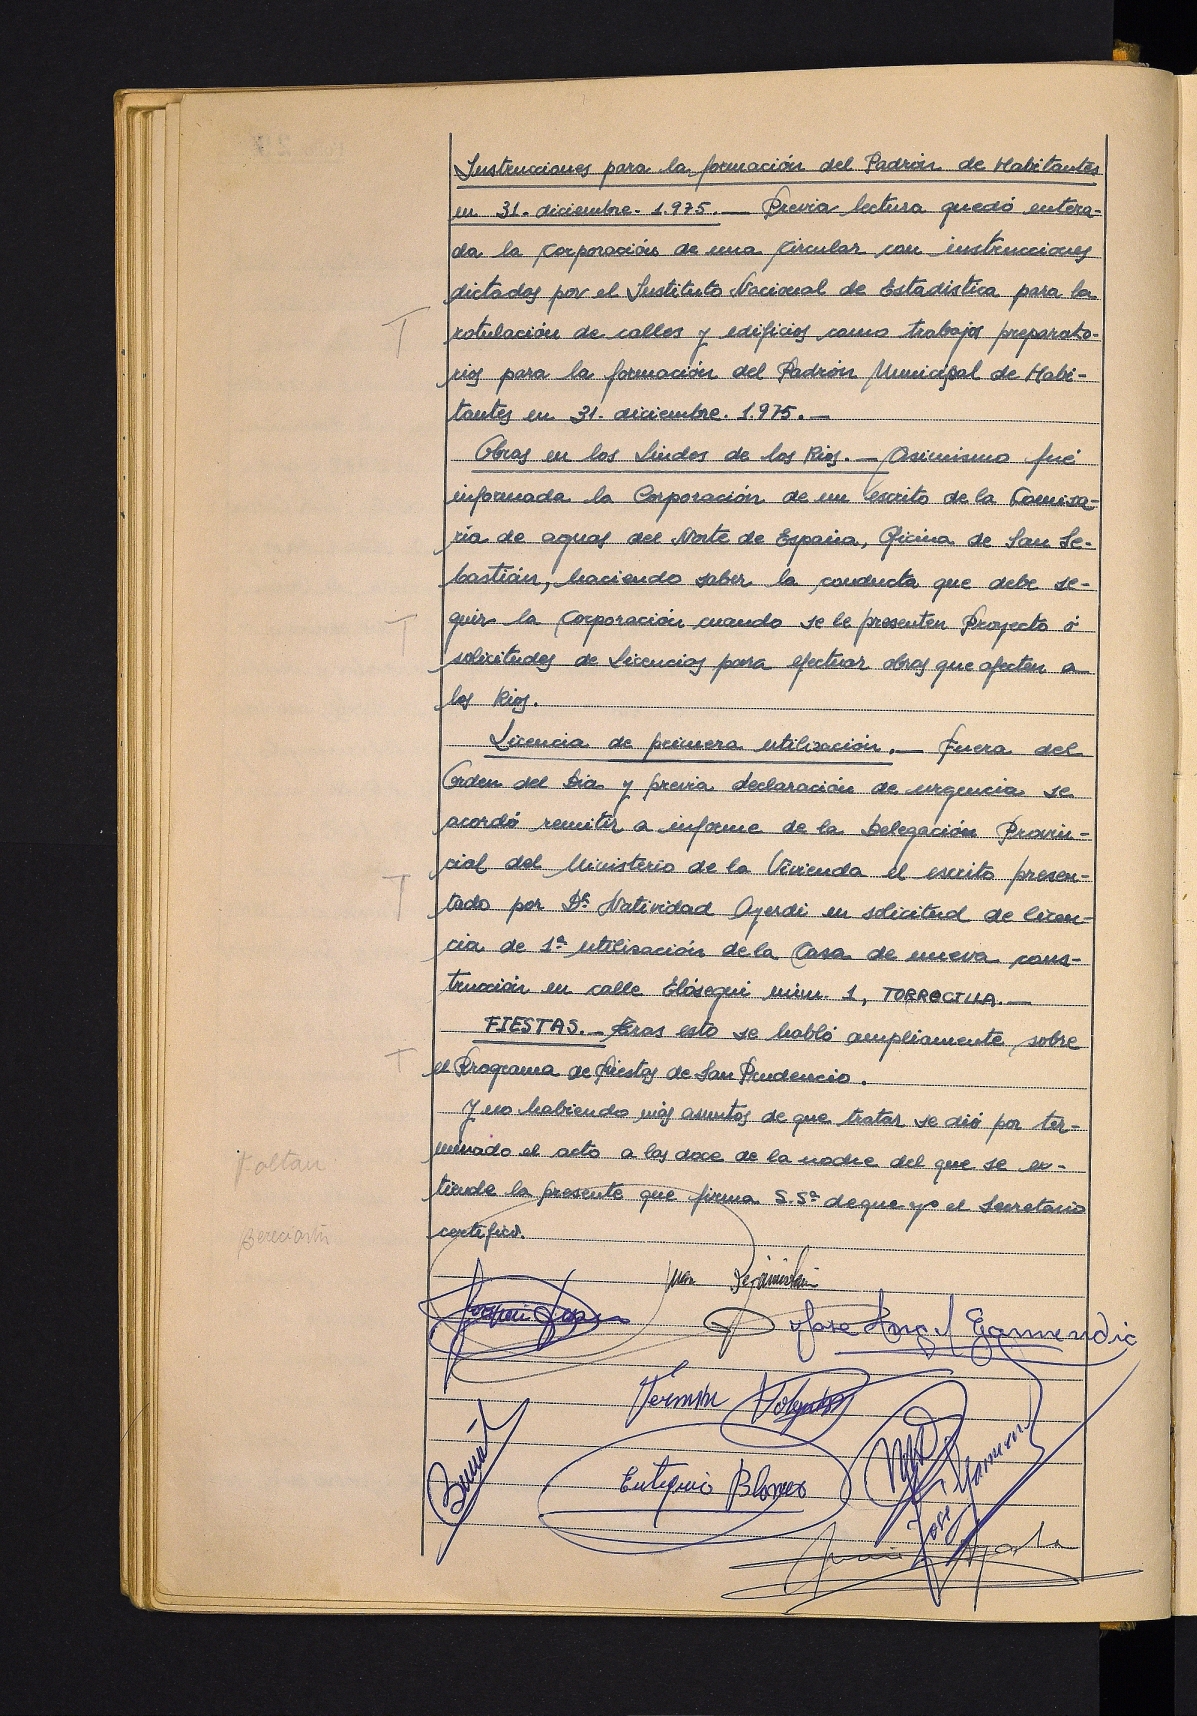 Instrucciones para la formación del Padrón de Habitantes
en 31. diciembre. 1.975.— Previa lectura quedó entera-
da la Corporación de una Circular con instrucciones
dictadas por el Instituto Nacional de Estadística para la
T
rotulación de calles y edificios como trabajos preparato-
rios para la formación del Padrón Municipal de Habi-
tantes en 31. diciembre. 1.975.—
Obras en los Lindes de los Rios.— Asimismo fué
informada la Corporación de un escrito de la Comisa-
ría de aguas del Norte de España, Oficina de San Se-
bastián, haciendo saber la conducta que debe se-
T
guir la Corporación cuando se le presenten Proyecto ó
solicitudes de Licencias para efectuar obras que afecten a
los Rios.
Licencia de primera utilización.— Fuera del
Orden del Dia y previa declaración de urgencia se
acordó remitir a informe de la Delegación Provin-
cial del Ministerio de la Vivienda el escrito presen-
T
tado por Dª Natividad Ayerdi en solicitud de licen-
cia de 1ª utilización de la Casa de nueva cons-
trucción en calle Elósegui núm. 1, TORRECILLA.—
FIESTAS.— Tras esto se habló ampliamente sobre
T
el Programa de Fiestas de San Prudencio.
Y no habiendo más asuntos de que tratar se dió por ter-
minado el acto a las doce de la noche del que se ex-
Faltan
tiende la presente que firma S.Sª de que yo el Secretario
certifico.
Juan
Jose Angel Egamendia
Fermin
Eutiquio Blanco
Jose